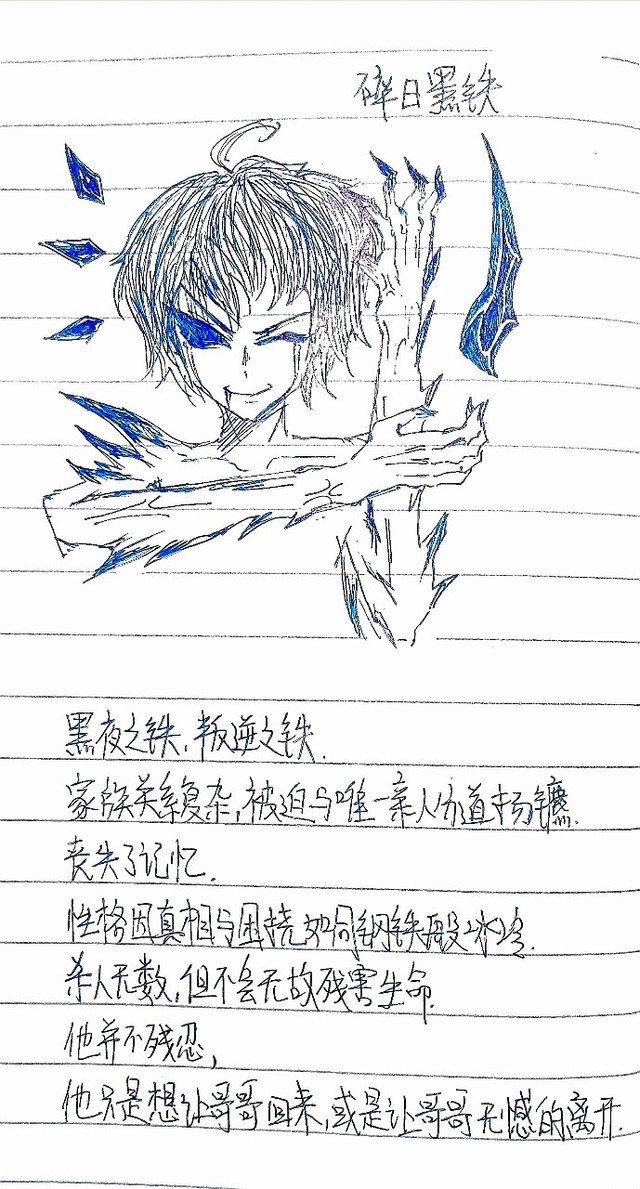 碎日黑铁
黑夜之铁,叛逆之铁.
家族关系复杂,被迫与唯一亲人分道扬镳.
丧失了记忆.
性格因真相与困扰如同钢铁般冰冷.
杀人无数,但不会无故残害生命.
他并不残忍,
他只是想让哥哥回来,或是让哥哥无憾的离开.